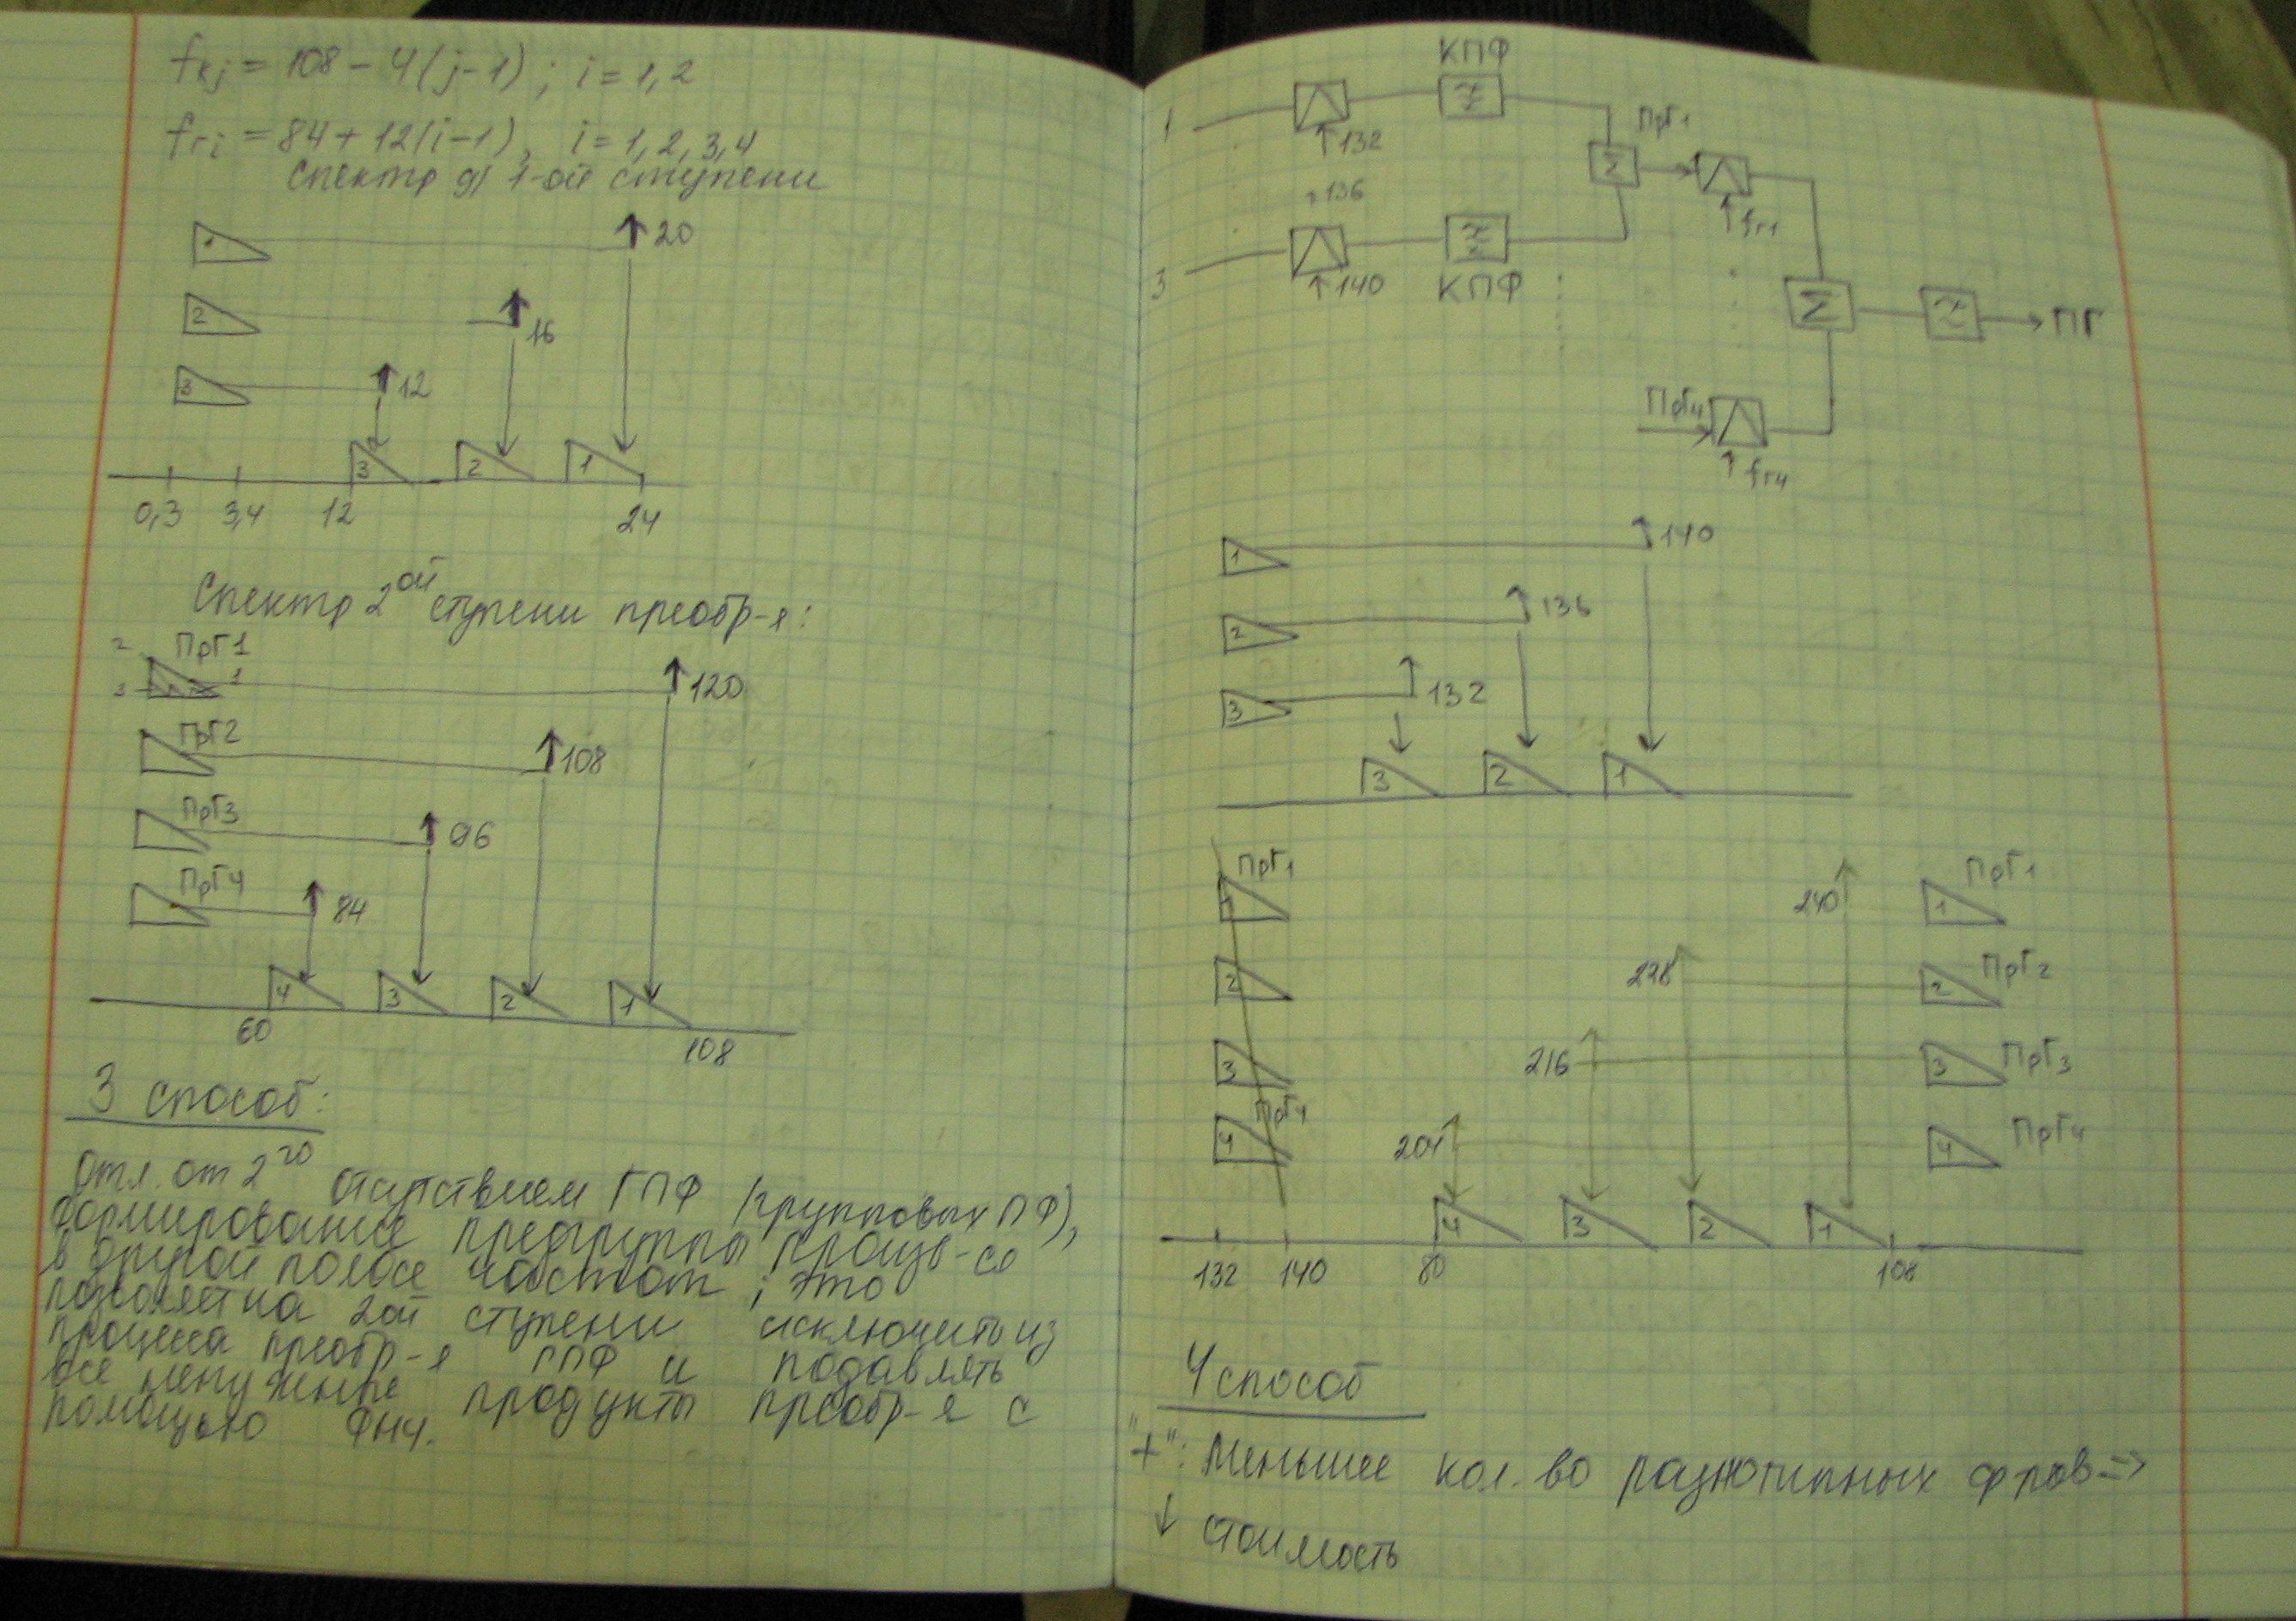 fкj = 108 - 4(j-1); i = 1,2
fгi = 84 + 12(i-1), i = 1,2,3,4
Спектр д/ 1-ой ступени
1
20
2
16
3
12
3 2 1
0,3 3,4 12 24
Спектр 2ой ступени преобр-я:
2 ПрГ1
3 1
120
ПрГ2
108
ПрГ3
96
ПрГ4
84
4 3 2 1
60 108
3 способ:
Отл. от 2го отсутствием ГПФ (групповых ПФ),
формирование предгруппы произв-ся
в другой полосе частот; это
позволяет на 2ой ступени исключить из
процесса преобр-я ГПФ и подавлять
все ненужные продукты преобр-я с
помощью ФНЧ.
КПФ
1
132
ПрГ1
Σ
fг1
136
3
140
КПФ
Σ
ПГ
ПрГ4
fг4
1
140
2
136
3
132
3 2 1
ПрГ1
1
240
1
ПрГ1
2
228
2
ПрГ2
3
216
3
ПрГ3
ПрГ4
4
204
4
ПрГ4
4 3 2 1
132 140 80 108
4 способ
"+": Меньшее кол. во разнотипных ф-ров =>
↓ стоимость